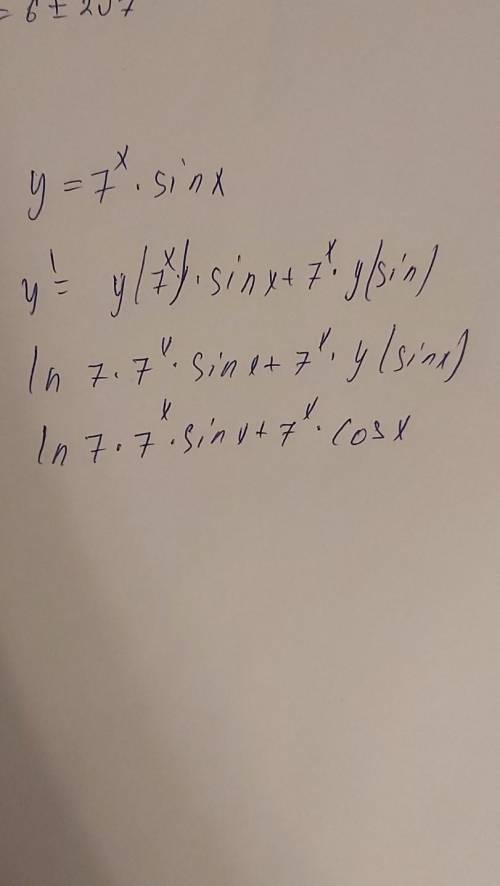 = 6 ± 2√7
y = 7^x · sin x
y' = y(7^x) · sin x + 7^x · y(sin)
ln 7 · 7^x · sin x + 7^x · y(sin x)
ln 7 · 7^x · sin x + 7^x · cos x